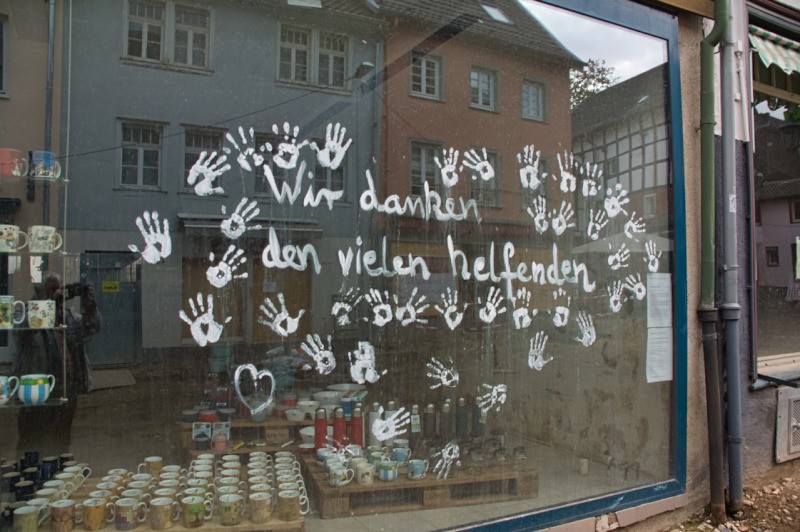 Wir danken
den vielen helfenden